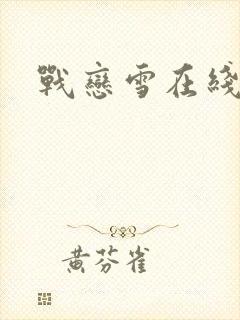 戰戀雪在綫
黃芬雀